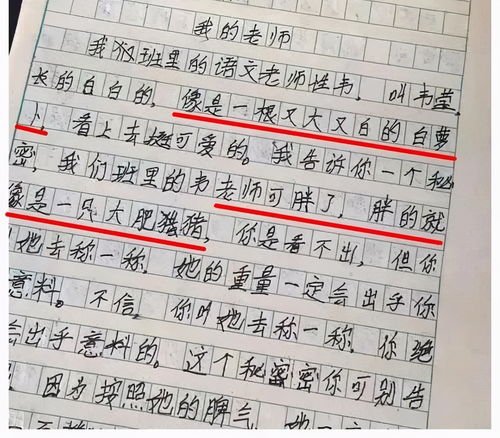 我的老师
我们班里的语文老师性韦。叫韦莹。
长的白白的，像是一根又大又白的白萝
卜，看上去挺可爱的。我告诉你一个秘
密，我们班里的韦老师可胖了，胖的就
像是一只大肥猪猪，你是看不出，但你
她去称一称。她的重量一定会出乎你
意料。不信。你叫她去称一称。你绝
会出乎意料的。这个秘密密你可别告
因为按照她的脾气